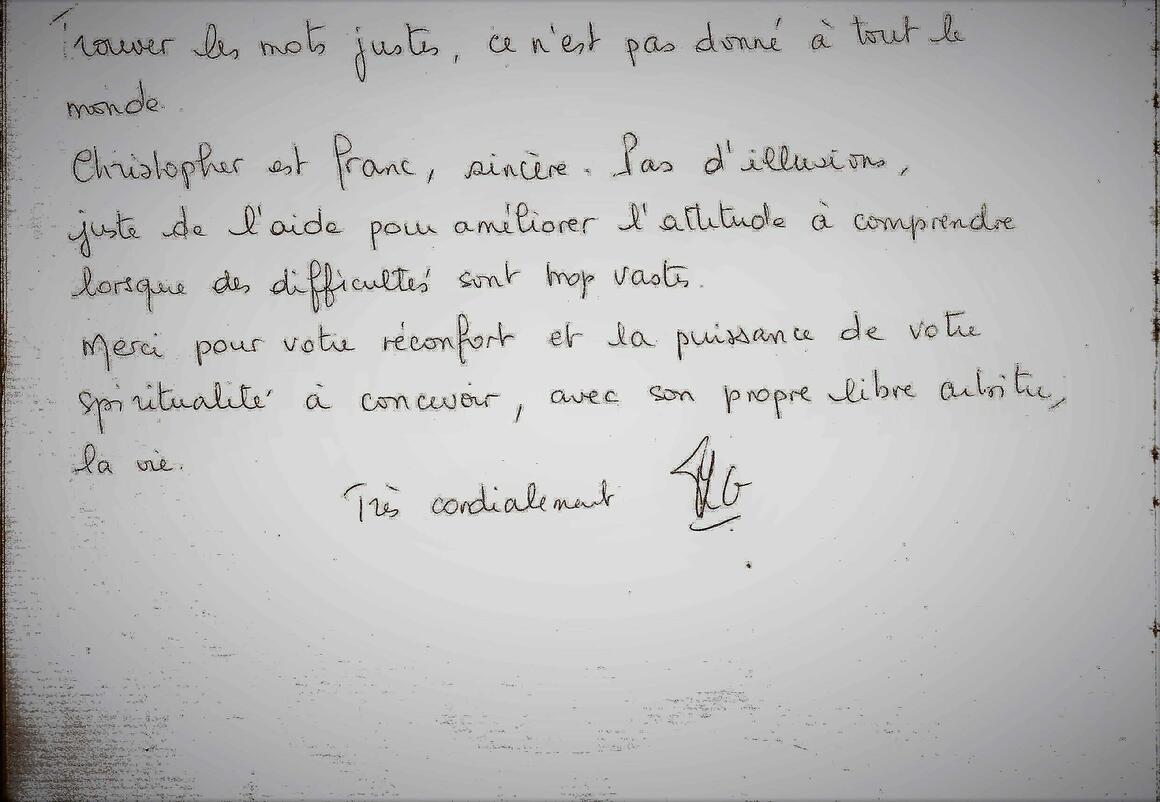 Trouver les mots justes, ce n'est pas donné à tout le
monde.
Christopher est franc, sincère. Pas d'illusions,
juste de l'aide pour améliorer l'attitude à comprendre
lorsque des difficultés sont trop vastes.
Merci pour votre réconfort et la puissance de votre
spiritualité à concevoir, avec son propre libre arbitre,
la vie.
Très cordialement